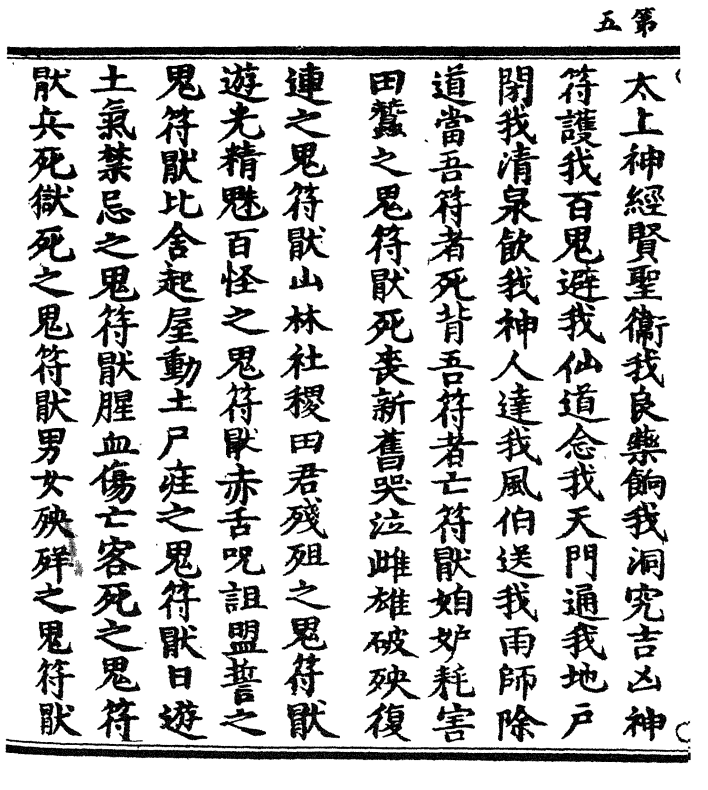 第五
太上神經賢聖衞我良藥餉我洞究吉凶神
符護我百鬼避我仙道念我天門通我地戶
閉我清泉飲我神人達我風伯送我雨師除
道當吾符者死背吾符者亡符猒妒耗害
田蠶之鬼符猒死喪新舊哭泣雌雄破殃復
連之鬼符猒山林社稷田君殘殂之鬼符猒
遊光精魅百怪之鬼符猒赤舌呪詛盟誓之
鬼符猒比舍起屋動土尸疰之鬼符猒日遊
土氣禁忌之鬼符猒腥血傷亡客死之鬼符
猒兵死獄死之鬼符猒男女殃之鬼符猒